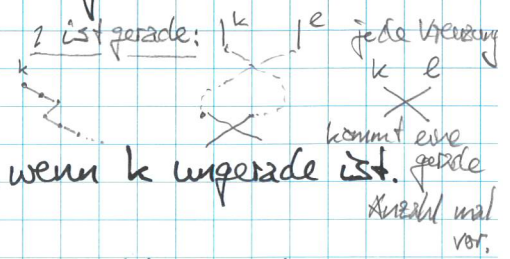 1 ist gerade: k e jede Kreuzung
k k e
kommt eine
wenn k ungerade ist. gerade
Anzahl mal
vor.